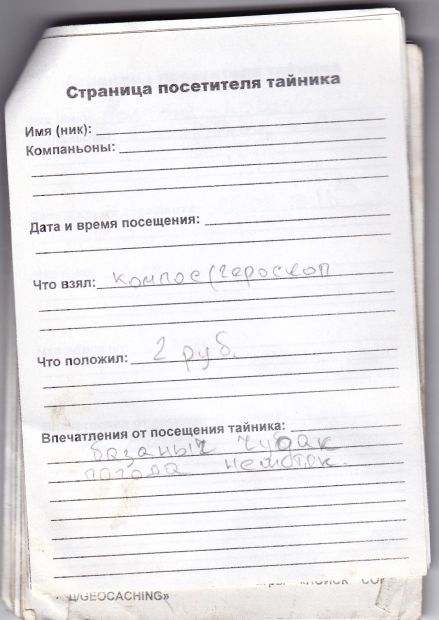 Страница посетителя тайника
Имя (ник):
Компаньоны:
Дата и время посещения:
Что взял: компос/героскоп
Что положил: 2 руб.
Впечатления от посещения тайника:
чудак
погода
«ПОИСК СО
Ц/GEOCACHING»